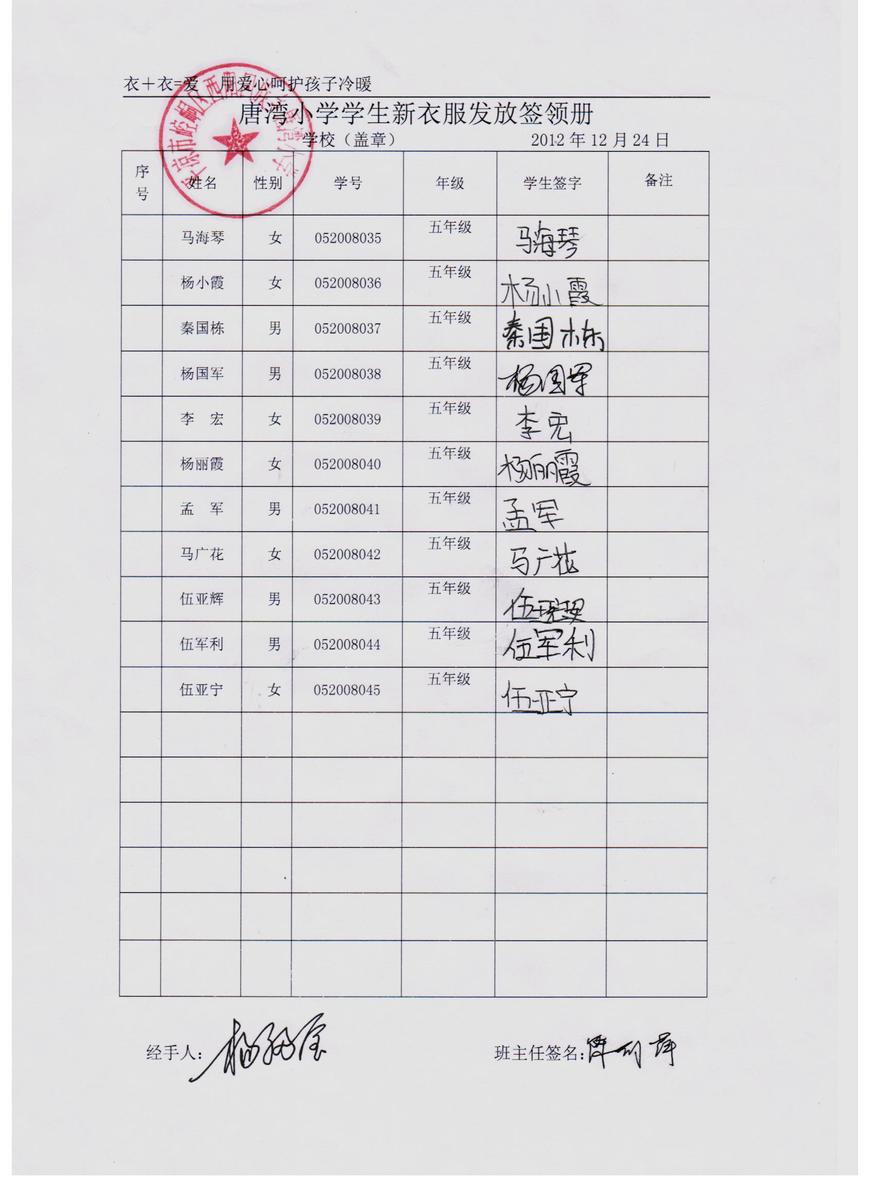 衣+衣=爱 用爱心呵护孩子冷暖
唐湾小学学生新衣服发放签领册
学校（盖章） 2012年12月24日
序号 姓名 性别 学号 年级 学生签字 备注
马海琴 女 052008035 五年级 马海琴
杨小霞 女 052008036 五年级 杨小霞
秦国栋 男 052008037 五年级 秦国栋
杨国军 男 052008038 五年级 杨国军
李 宏 女 052008039 五年级 李宏
杨丽霞 女 052008040 五年级 杨丽霞
孟 军 男 052008041 五年级 孟军
马广花 女 052008042 五年级 马广花
伍亚辉 男 052008043 五年级 伍
伍军利 男 052008044 五年级 伍军利
伍亚宁 女 052008045 五年级 伍亚宁
经手人： 班主任签名：